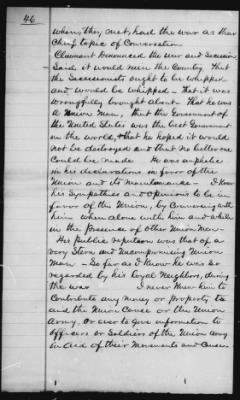 46
when they met, had the war as their
Chief topic of Conversation
Claimant Denounced the war and Secession
Said it would ruin the Country. That
the Secessionists ought to be whipped
and would be whipped – that it was
wrongfully brought about – That he was
a Union Man, that the Government of
the United States was the best Government
in the world, & that he hoped it would
not be destroyed and that no better one
Could be made He was emphatic
in his declarations in favor of the
Union and its maintenance – I know
his Sympathies and opinions to be in
favor of the Union, by Conversing with
him when alone with him and while
in the presence of other Union men –
His public reputation was that of a
very Stern and Uncompromising Union
Man – So far as I know he was so
regarded by his loyal Neighbors, during
the war I never knew him to
Contribute any money or property to
aid the Union Cause or the Union
Army, or ever to give information to
Officers or Soldiers of the Union Army
in aid of their Movements and Cause